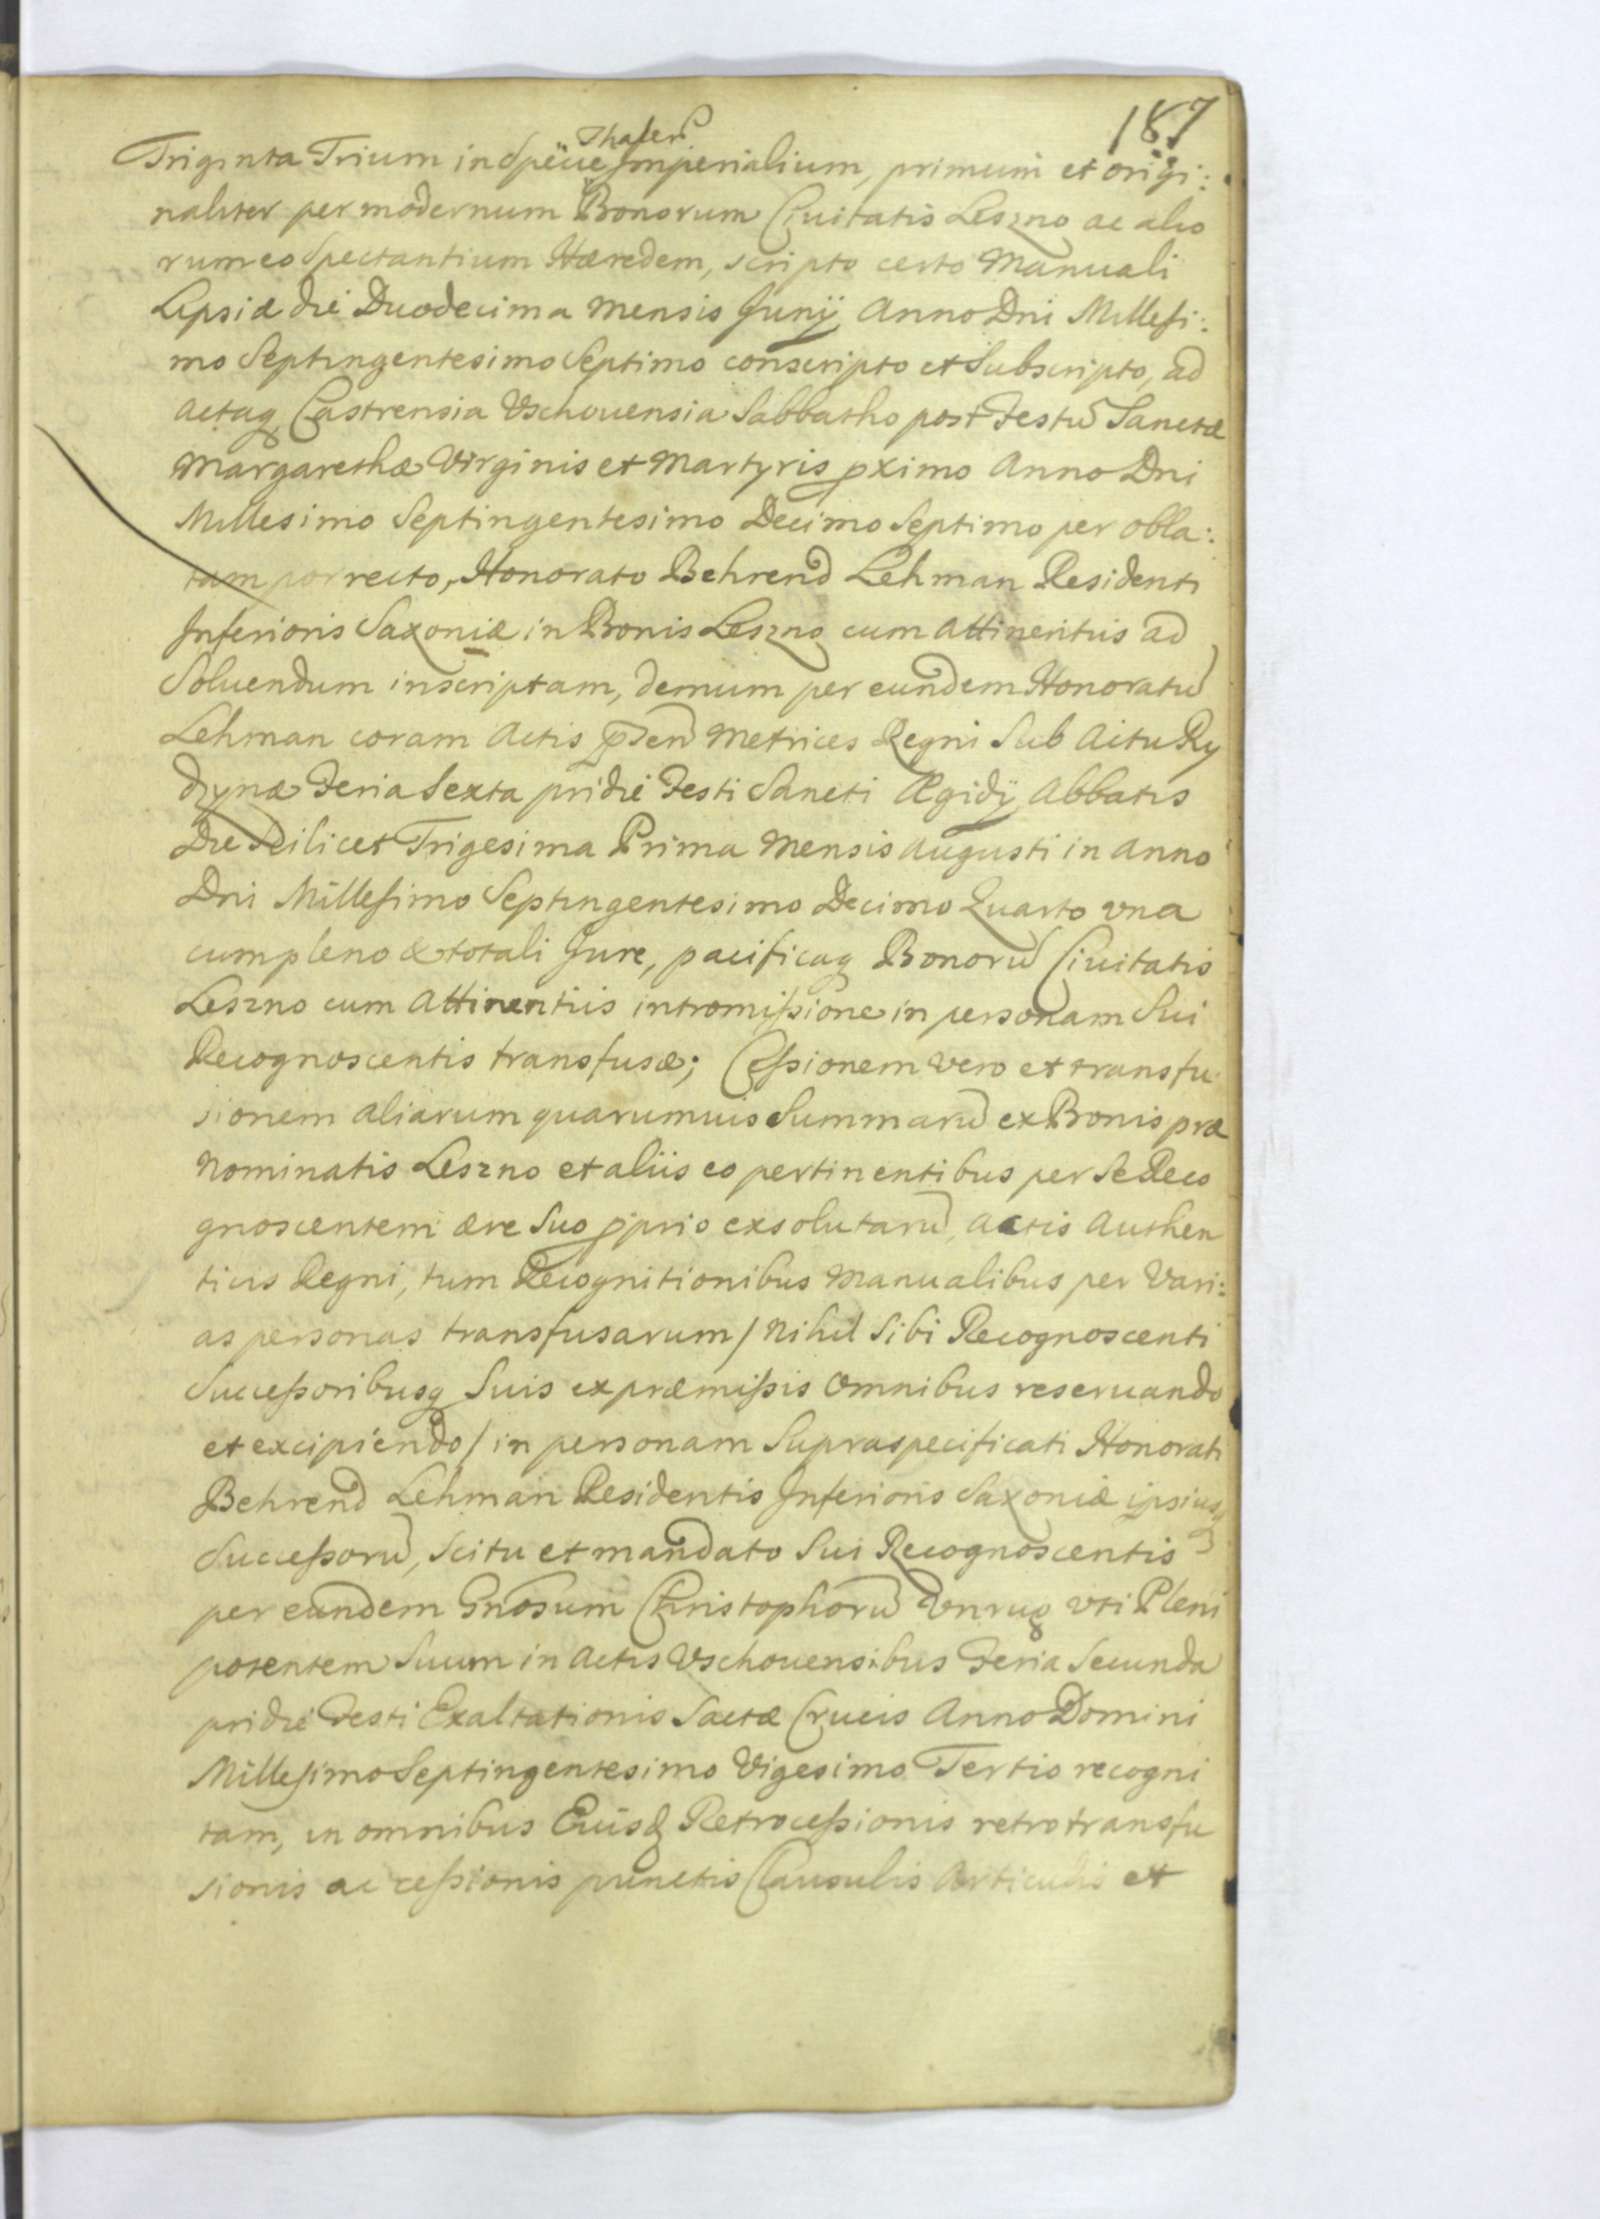 187
Thaler
Triginta Trium in Specie Imperialium, primum et origi:
naliter per modernum Bonorum Civitatis Leszno ac alio
rum eo Spectantium Hæredem, scripto certo Manuali
Lipsiæ die Duodecima Mensis Junij Anno Dni Millesi:
mo Septingentesimo Septimo conscripto et Subscripto, ad
actaq Castrensia Vschouensia Sabbatho post Festu Sanctæ
Margarethæ Virginis et Martyris pximo Anno Dni
Millesimo Septingentesimo Decimo Septimo per obla:
tam porrecto, Honorato Behrend Lehman Residenti
Inferioris Saxoniæ in Bonis Leszno cum attinentiis ad
Soluendum inscriptam, demum per eundem Honoratu
Lehman coram Actis pnden Metrices Regni Sub Actu Ry
dzynæ Feria Sexta pridie Festi Sancti Ægidij Abbatis
Die Scilicet Trigesima Prima Mensis Augusti in Anno
Dni Millesimo Septingentesimo Decimo Quarto vna
cum pleno & totali Jure, pacificaq Bonoru Ciuitatis
Leszno cum Attinentiis intromissione in personam Sui
Recognoscentis transfusæ; Cessionem vero et transfu
sionem aliarum quarumuis Summaru ex Bonis præ
nominatis Leszno et aliis eo pertinentibus per Se Reco
gnoscentem ære Suo pprio exsolutaru, actis Authen
ticis Regni, tum Recognitionibus Manualibus per Vari:
as personas transfusarum / Nihil Sibi Recognoscenti
Successoribusq Suis ex præmissis Omnibus reseruando
et excipiendo / in personam Supraspecificati Honorati
Behrend Lehman Residentis Inferioris Saxoniæ ipsiusq
Successoru, Scitu et mandato Sui Recognoscentis
per eundem Gnosum Christophoru Vnrug vti Pleni
potentem Suum in Actis Vschouensibus Feria Secunda
pridie Festi Exaltationis Sactæ Crucis Anno Domini
Millesimo Septingentesimo Vigesimo Tertio recogni
tam, in omnibus Eiusd Retrocessionis retrotransfu
sionis ac cessionis punctis Clausulis Articulis et